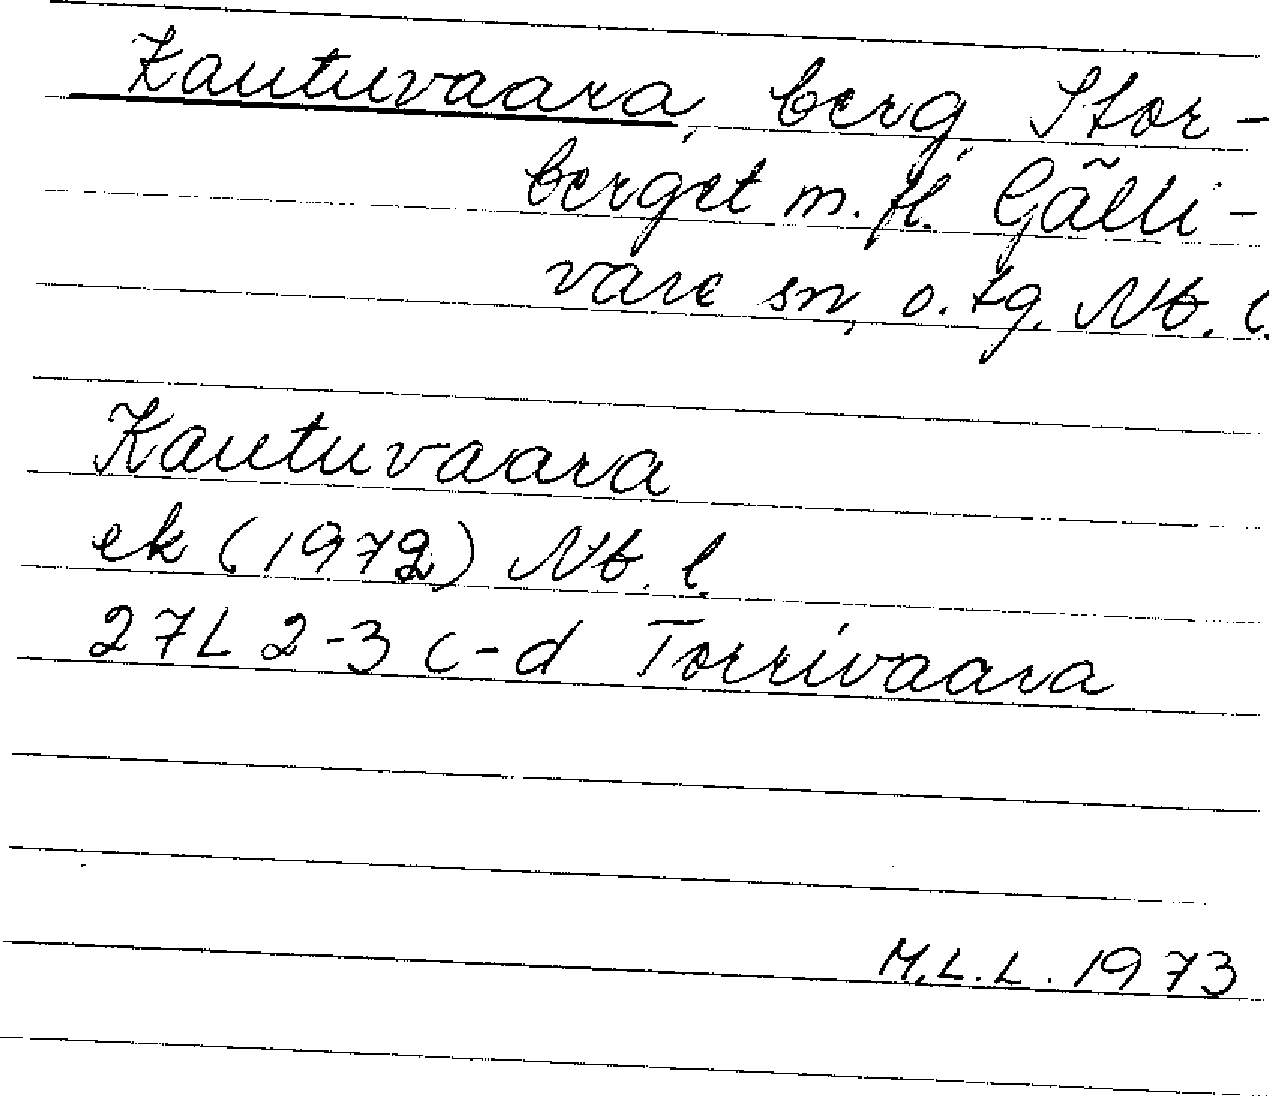 Kautuvaara, berg, Stor-
berget m. fl. Gälli-
vare sn, o. tg. Nb. l.
Kautuvaara
ek (1972) Nb. l.
27L 2-3 c-d Torrivaara
M.L.L. 1973